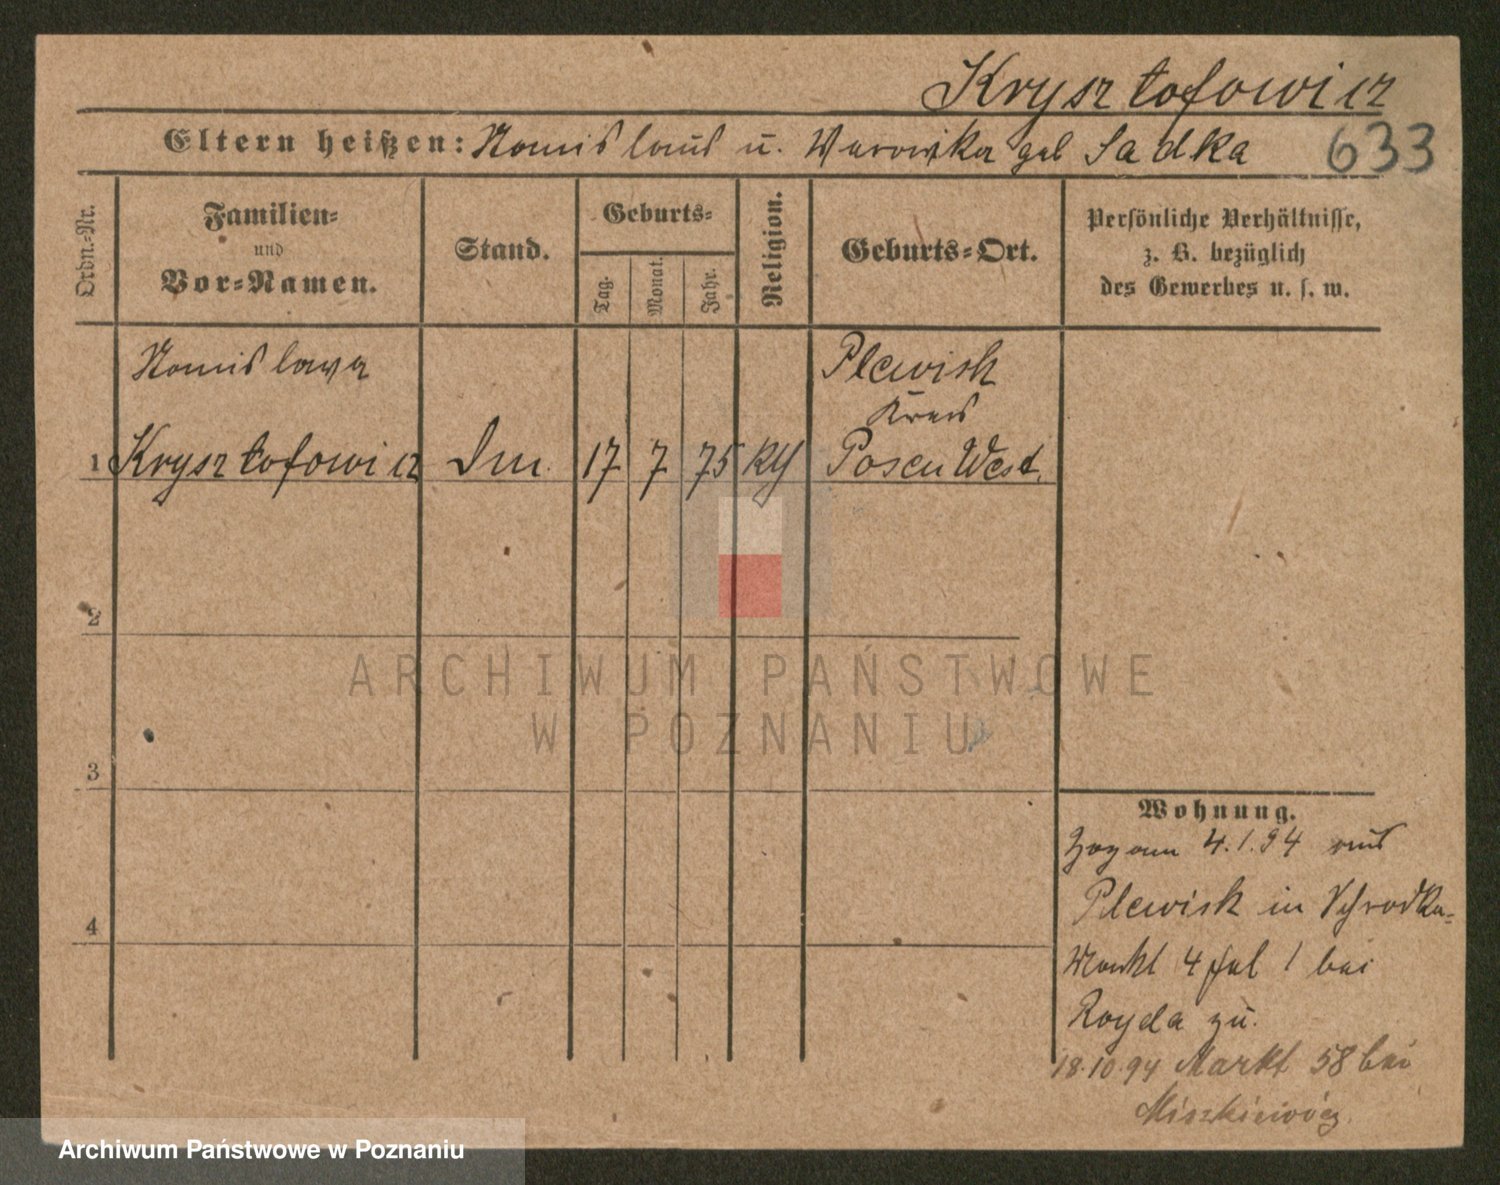 Krysztofowicz
Eltern heißen: Stanislaus u. Veronika geb Sadka 633
Ordn.-Nr.
Familien-
und
Vor-Namen.
Stand.
Geburts-
Tag.
Monat.
Jahr.
Religion.
Geburts-Ort.
Persönliche Verhältnisse,
z. B. bezüglich
des Gewerbes u. s. w.
Stanislawa
Plewisk
Kreis
1 Krysztofowicz 17 7 75 Posen West.
2
3
4
Wohnung.
Zog am 4.1.94 aus
Plewisk in Schrodka-
Markt 4 1 bei
Royda zu.
18.10.94 Markt 58 bei
ARCHIWUM PAŃSTWOWE
W POZNANIU
Archiwum Państwowe w Poznaniu